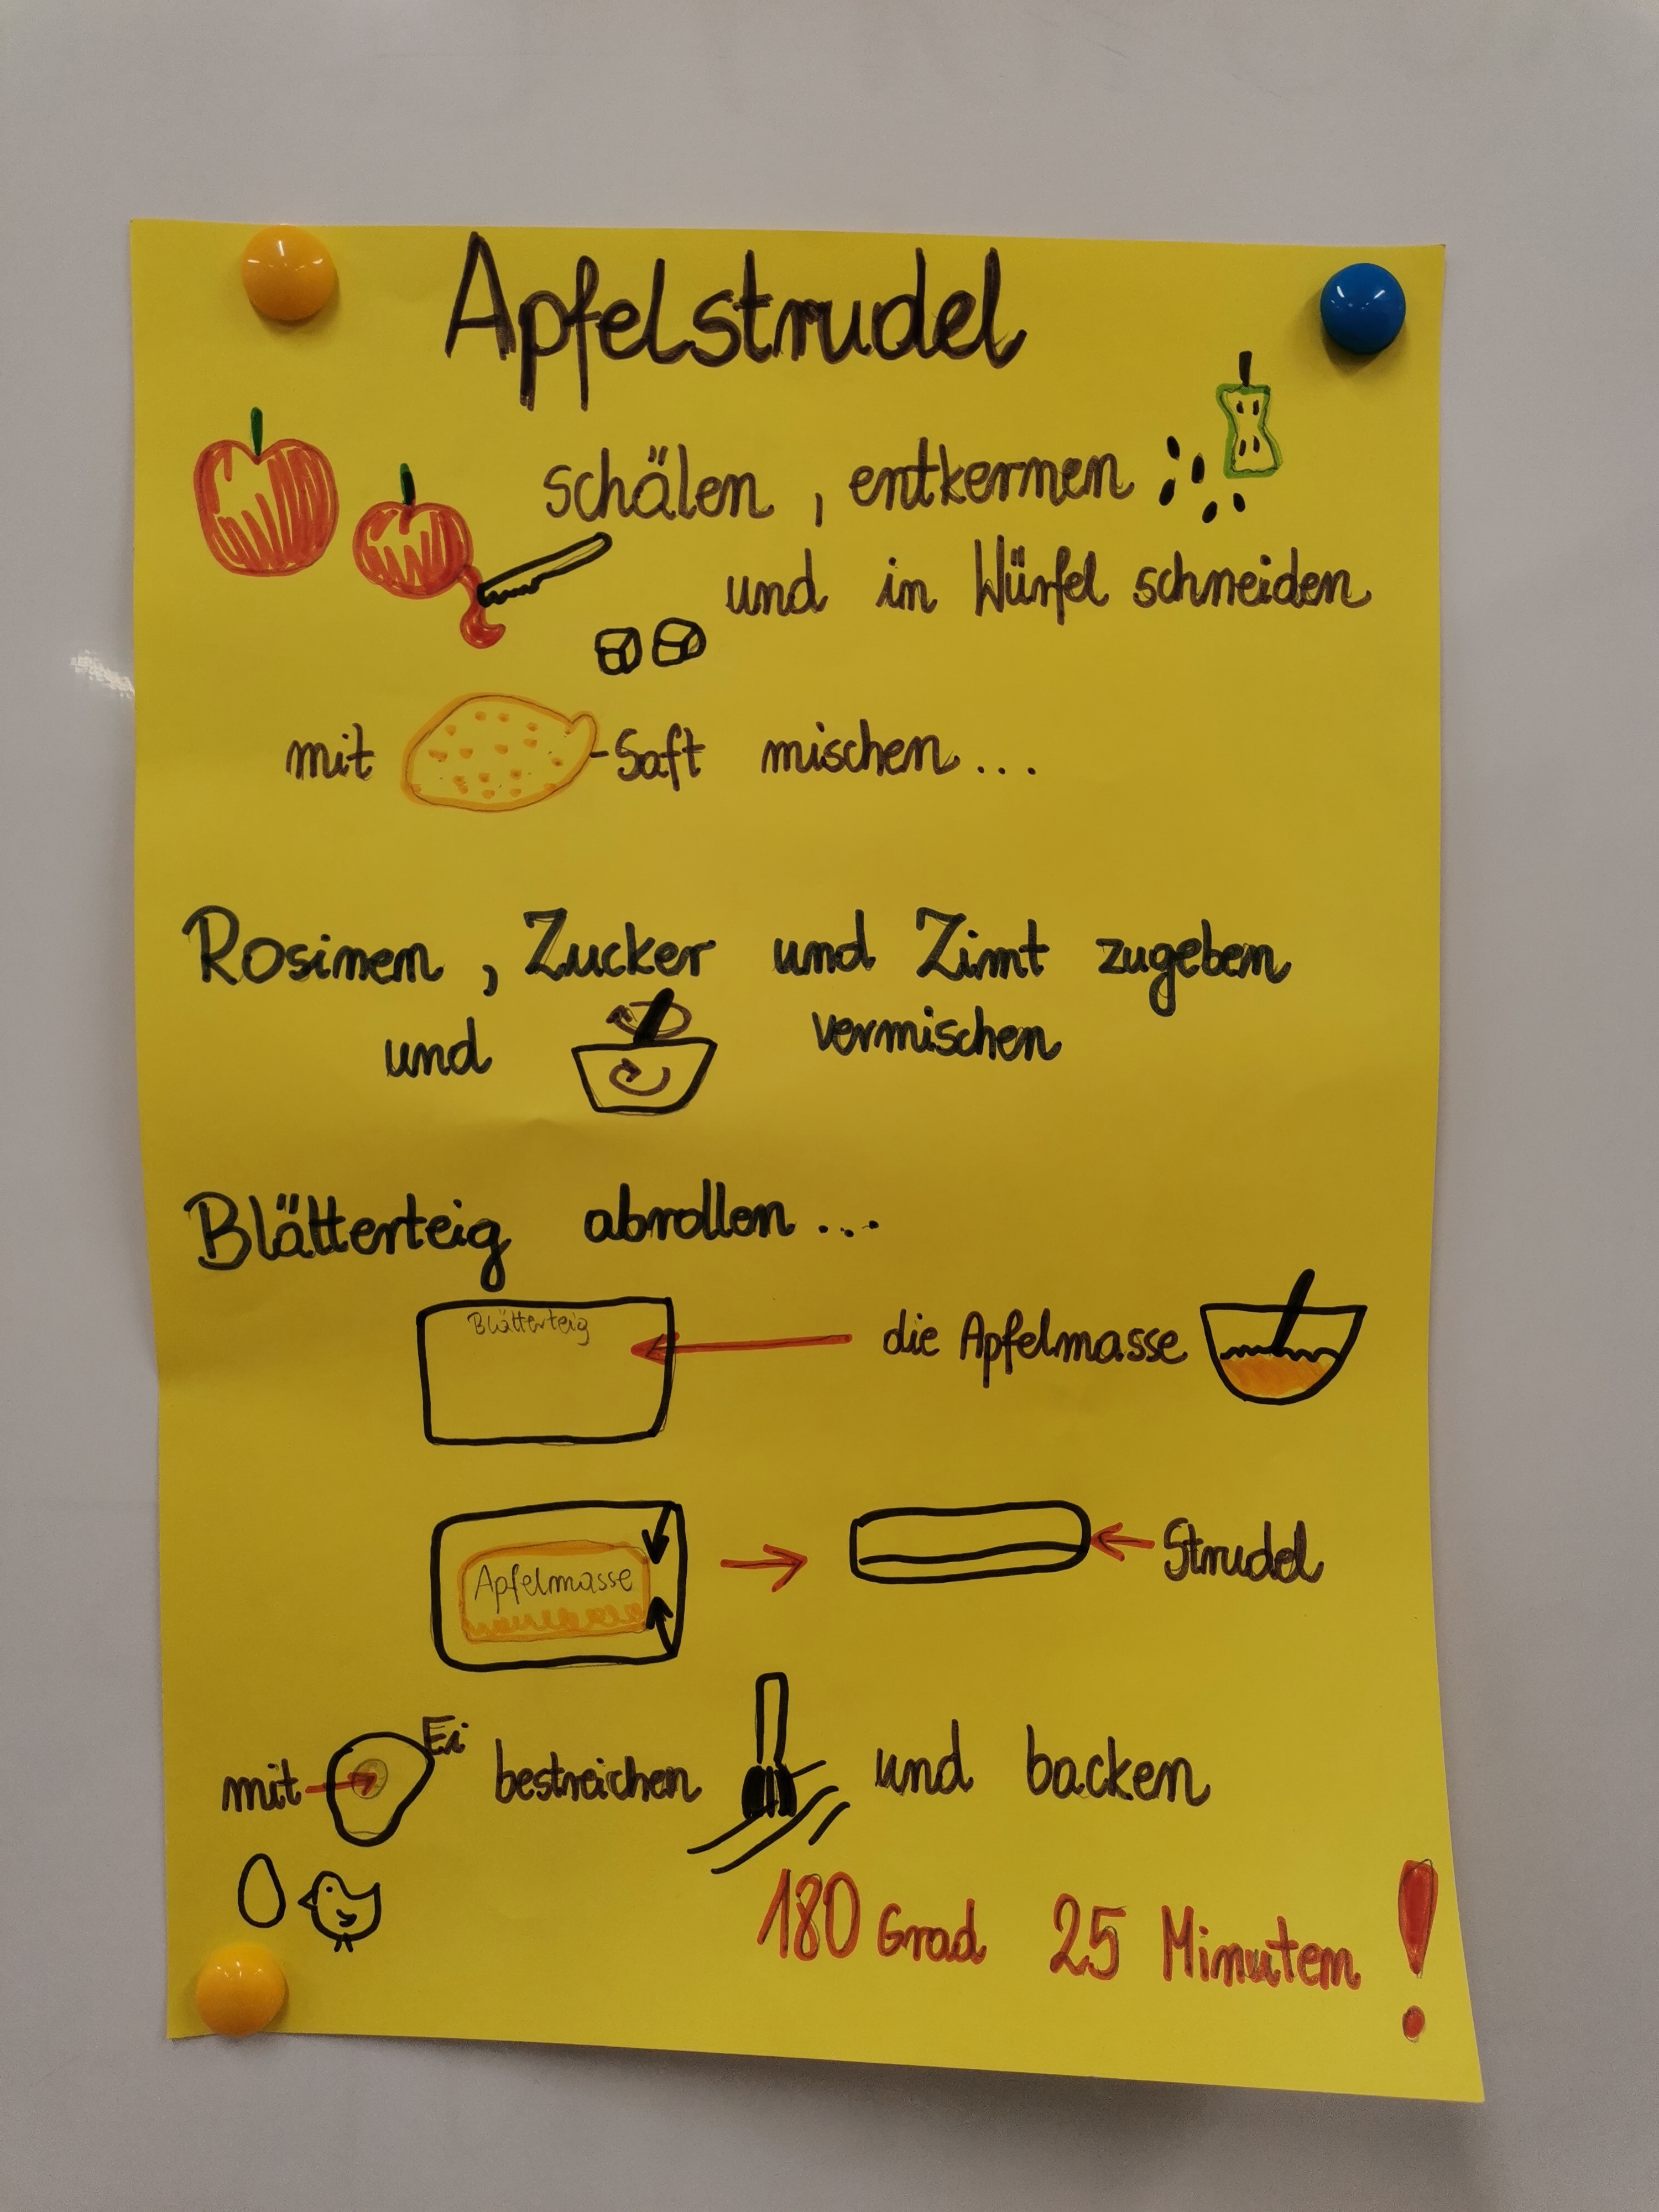 Apfelstrudel
schälen, entkernen
und in Würfel schneiden
mit -Saft mischen...
Rosinen, Zucker und Zimt zugeben
und vermischen
Blätterteig abrollen...
Blätterteig
die Apfelmasse
Apfelmasse
Strudel
mit Ei bestreichen und backen
180 Grad 25 Minuten !